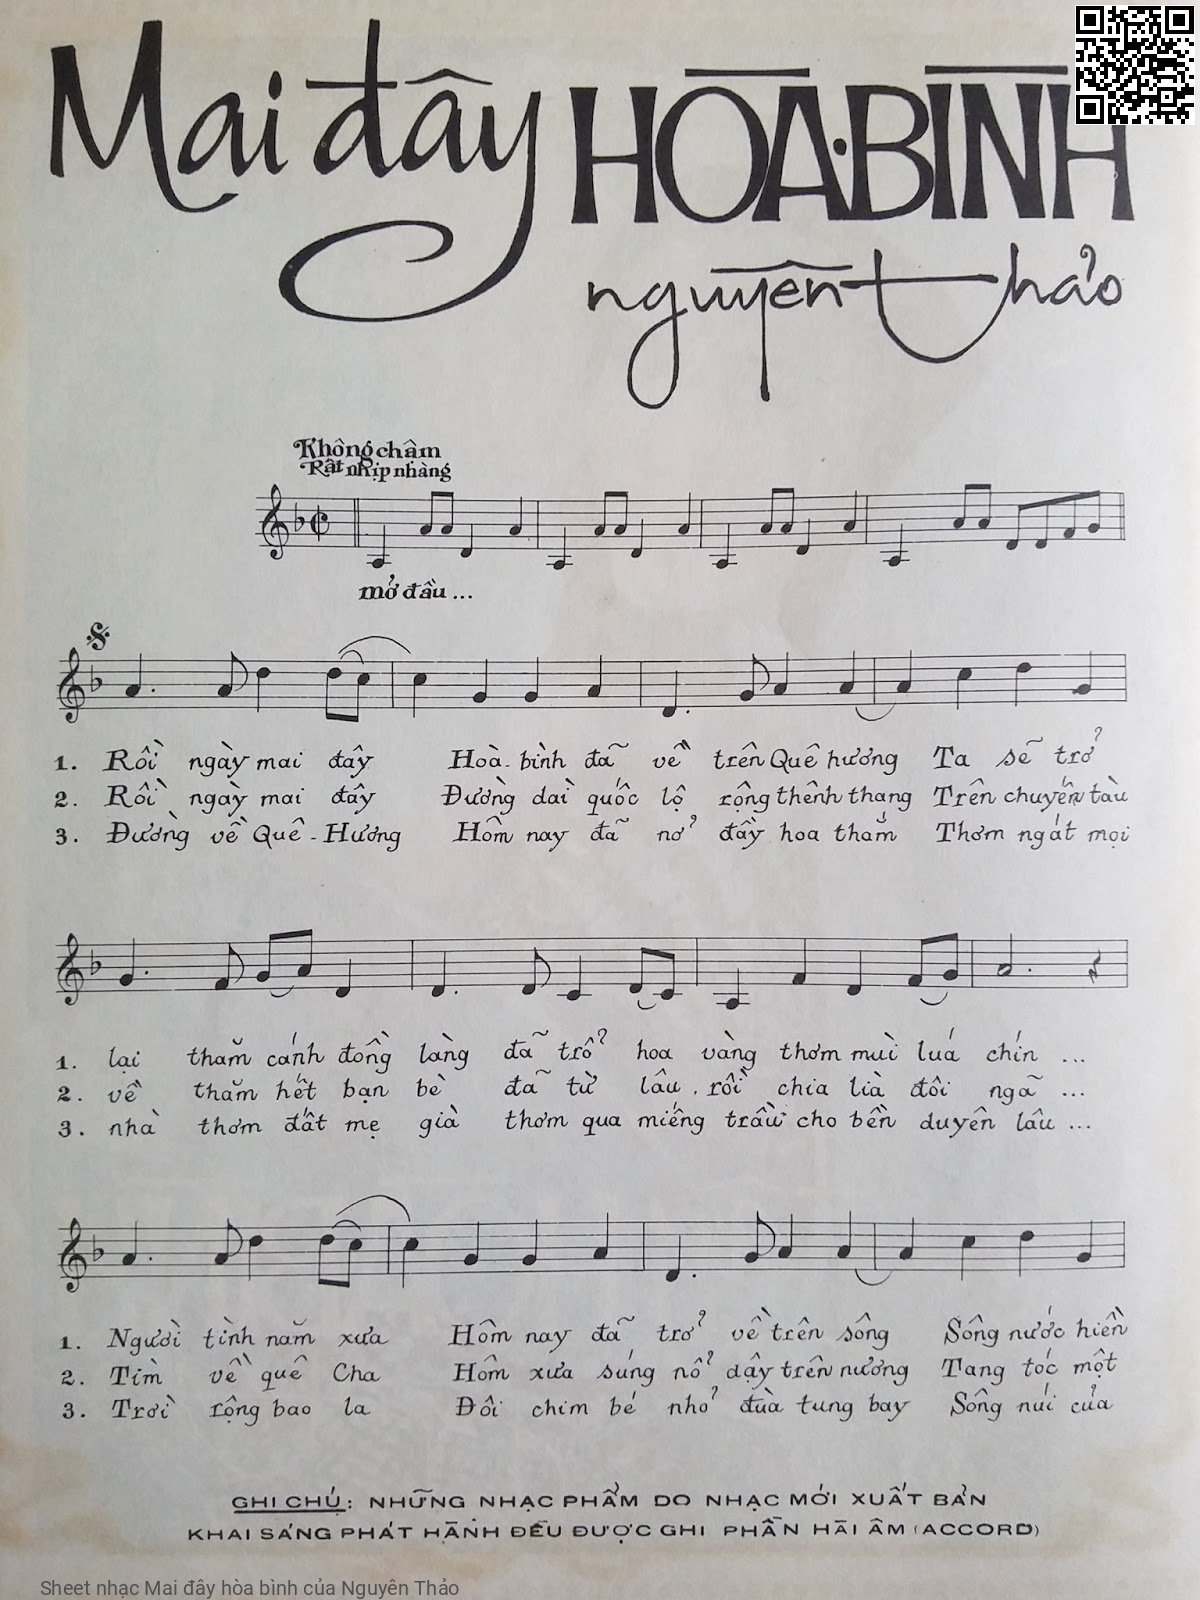 Mai đây HOÀ·BÌNH
nguyên thảo
Không chậm
Rất nhịp nhàng
mở đầu ...
1. Rồi ngày mai đây Hoà-bình đã về trên Quê hương Ta sẽ trở
2. Rồi ngày mai đây Đường dài quốc lộ rộng thênh thang Trên chuyến tàu
3. Đường về Quê-Hương Hôm nay đã nở đầy hoa thắm Thơm ngát mọi
1. lại thăm cánh đồng làng đã trổ hoa vàng thơm mùi luá chín ...
2. về thăm hết bạn bè đã từ lâu, rồi chia lià đôi ngã ...
3. nhà thơm đất mẹ già thơm qua miếng trầu cho bền duyên lâu ...
1. Người tình năm xưa Hôm nay đã trở về trên sông Sông nước hiền
2. Tìm về quê Cha Hôm xưa súng nổ dậy trên nương Tang tóc một
3. Trời rộng bao la Đôi chim bé nhỏ đùa tung bay Sông núi của
GHI CHÚ: NHỮNG NHẠC PHẨM DO NHẠC MỚI XUẤT BẢN
KHAI SÁNG PHÁT HÀNH ĐỀU ĐƯỢC GHI PHẦN HÀI ÂM (ACCORD)
Sheet nhạc Mai đây hòa bình của Nguyên Thảo